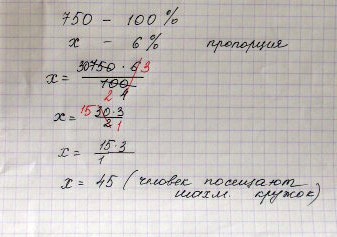 750 - 100 %
x - 6 % пропорция
x = 30 750 · 6 3 / 100 2 4
x = 15 30 · 3 / 2 1
x = 15 · 3 / 1
x = 45 (человек посещают
шахм. кружок)